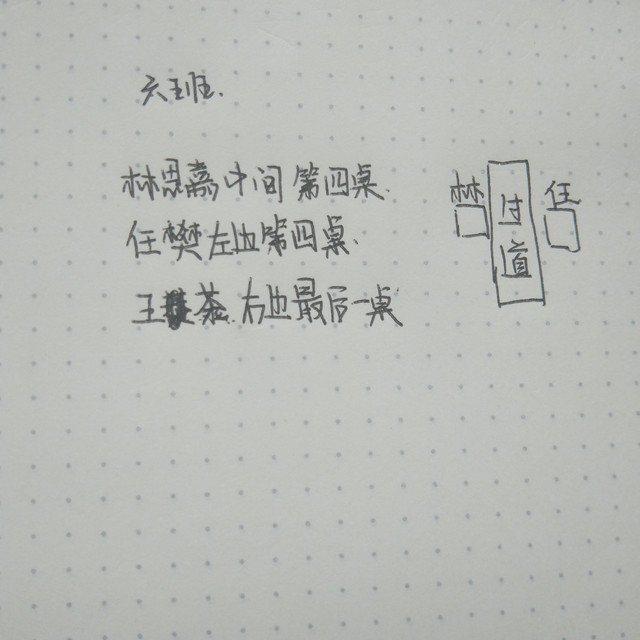 六班.
林思漓中间第四桌.
任樊左边第四桌.
王 茶.右边最后一桌
林 任
过道